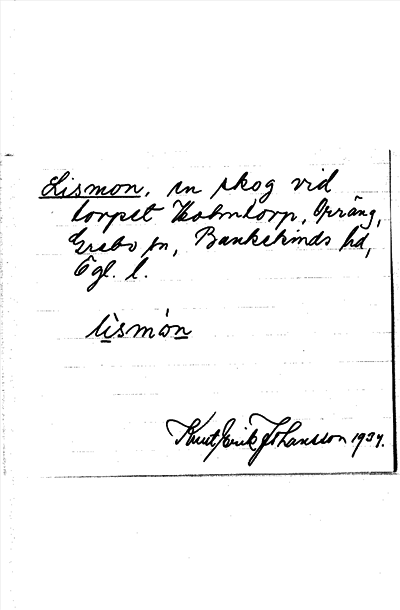 Lismon, en skog vid
torpet Holmtorp, Opräng,
Grebo sn, Bankekinds hd,
Ögl. l.
lìsmo̊n
Knut Erik Johansson 1937.